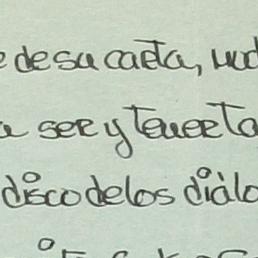 e de su carta,
a ser y tenerla
disco de los diálo